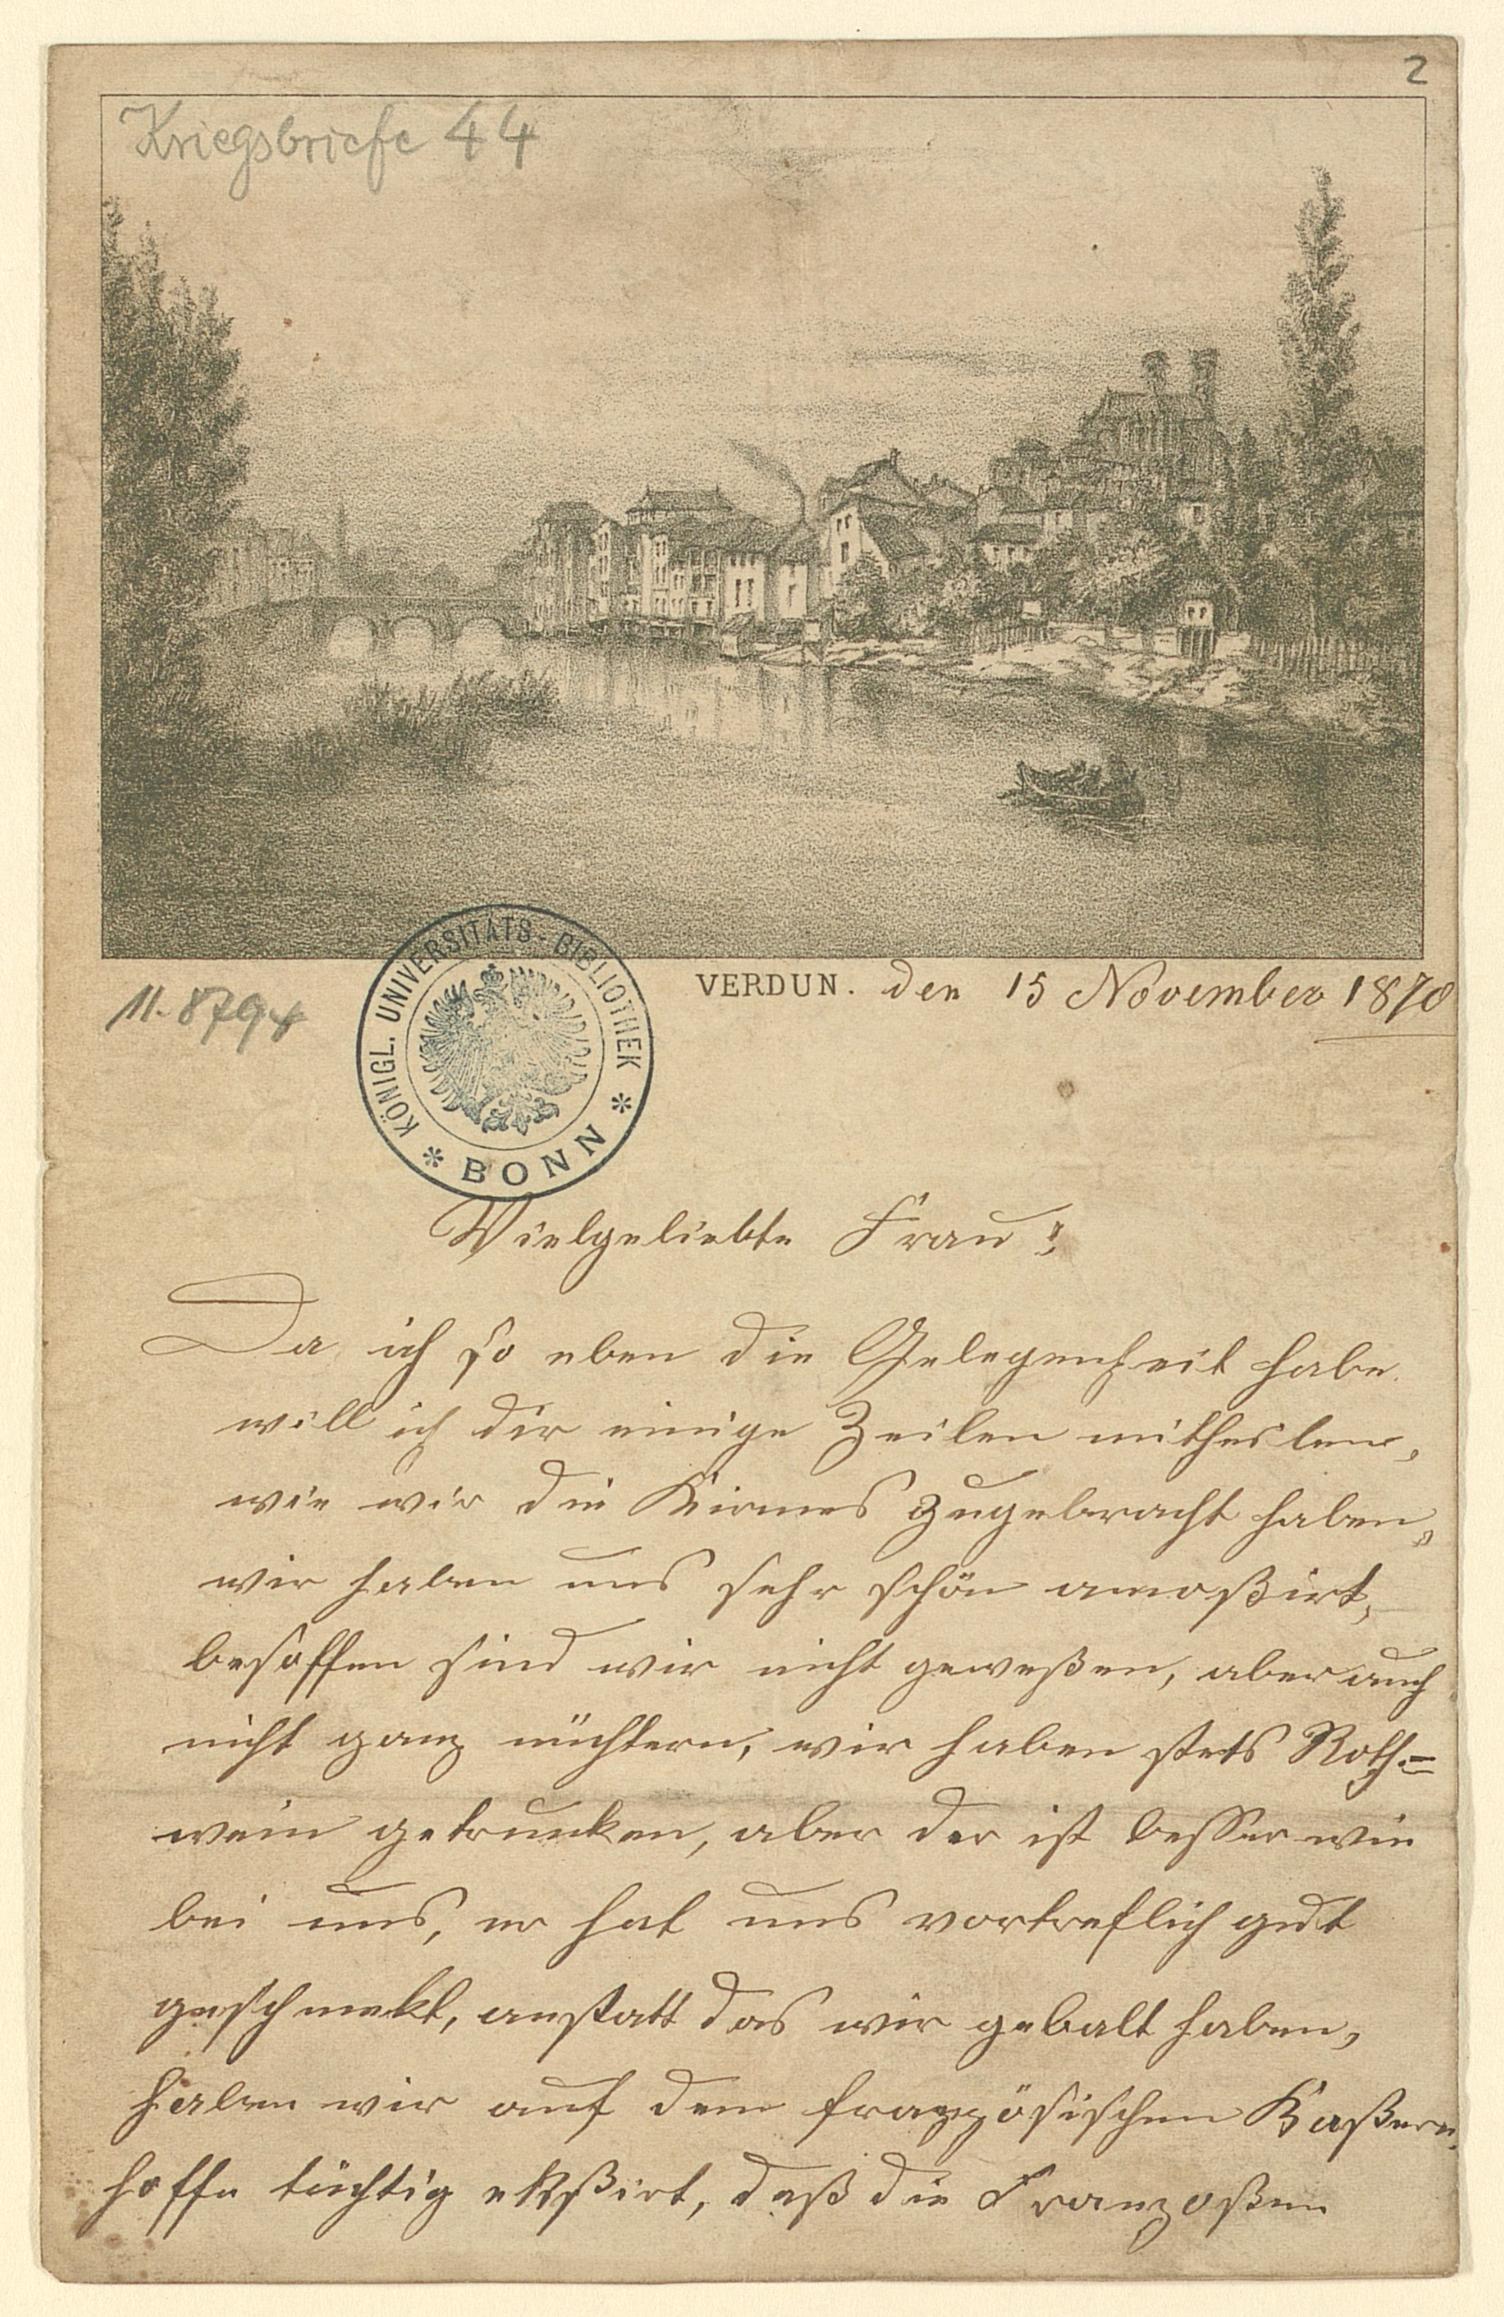 2
Kriegsbriefe 44
VERDUN. den 15 November 1870
11.8794
KÖNIGL. UNIVERSITÄTS-BIBLIOTHEK
* BONN *
Vielgeliebte Frau!
Da ich so eben die Gelegenheit habe
will ich dir einige Zeilen mitheilen,
wie wir die Kirmes zugebracht haben,
wir haben uns sehr schön amoßirt,
besoffen sind wir nicht geweßen, aber auch
nicht ganz nüchtern, wir haben stets Roth=
wein getrunken, aber der ist besser wie
bei uns, er hat uns vortreflich gut
geschmekt, anstatt das wir gebalt haben,
haben wir auf dem französischen Kaßern
hoffe tüchtig ekßirt, daß die Franzoßen